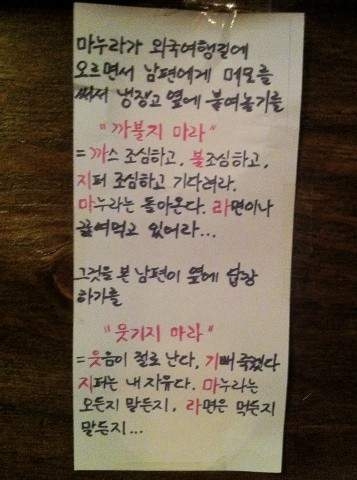 마누라가 외국여행길에
오르면서 남편에게 메모를
써서 냉장고 옆에 붙여놓기를
"까불지 마라"
=까스 조심하고, 불조심하고,
지퍼 조심하고 기다려라.
마누라는 돌아온다. 라면이나
끓여먹고 있어라...
그것을 본 남편이 옆에 답장
하기를
"웃기지 마라"
=웃음이 절로 난다, 기뻐 죽겠다
지퍼는 내 자유다. 마누라는
오든지 말든지, 라면은 먹든지
말든지...